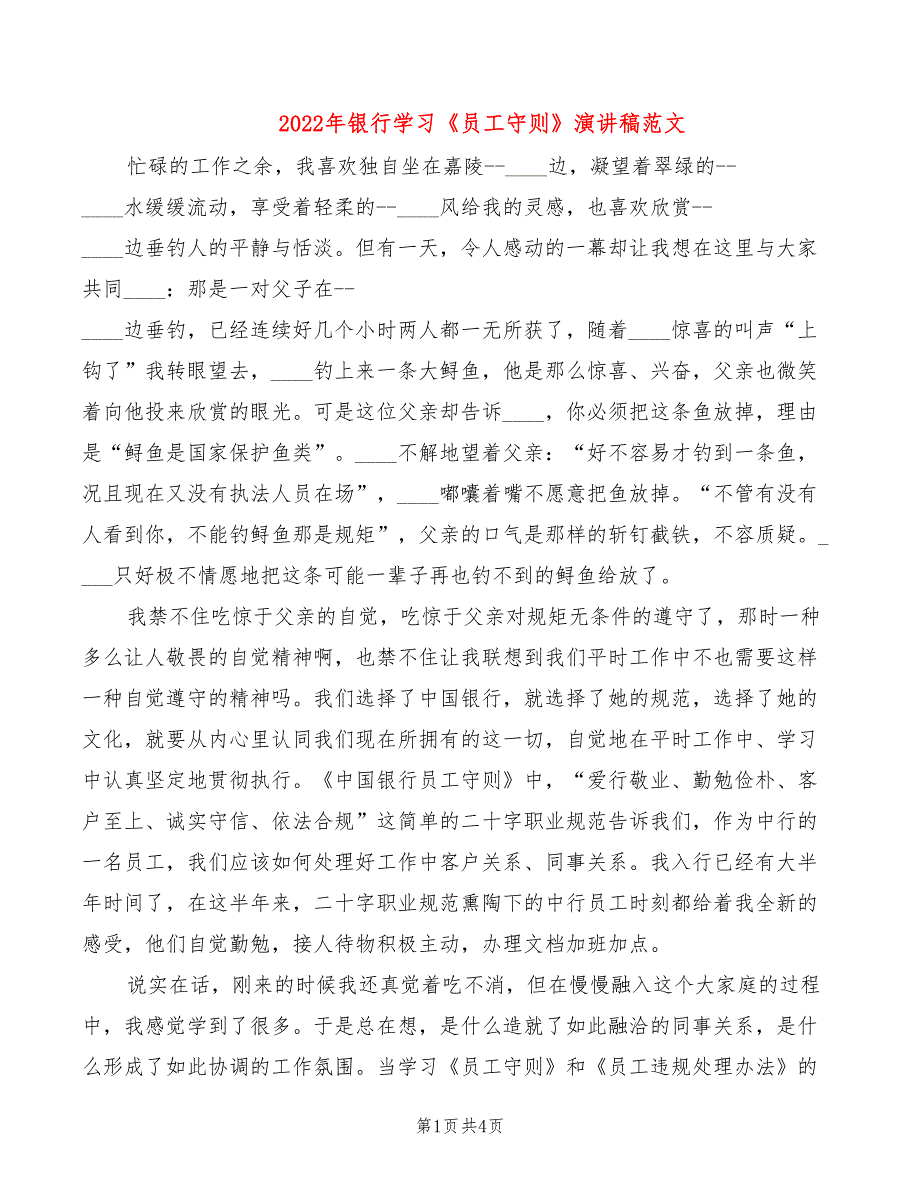 2022年银行学习《员工守则》演讲稿范文
忙碌的工作之余，我喜欢独自坐在嘉陵--____边，凝望着翠绿的--
____水缓缓流动，享受着轻柔的--____风给我的灵感，也喜欢欣赏--
____边垂钓人的平静与恬淡。但有一天，令人感动的一幕却让我想在这里与大家
共同____：那是一对父子在--
____边垂钓，已经连续好几个小时两人都一无所获了，随着____惊喜的叫声“上
钩了”我转眼望去，____钓上来一条大鲟鱼，他是那么惊喜、兴奋，父亲也微笑
着向他投来欣赏的眼光。可是这位父亲却告诉____，你必须把这条鱼放掉，理由
是“鲟鱼是国家保护鱼类”。____不解地望着父亲：“好不容易才钓到一条鱼，
况且现在又没有执法人员在场”，____嘟囔着嘴不愿意把鱼放掉。“不管有没有
人看到你，不能钓鲟鱼那是规矩”，父亲的口气是那样的斩钉截铁，不容质疑。_
___只好极不情愿地把这条可能一辈子再也钓不到的鲟鱼给放了。
我禁不住吃惊于父亲的自觉，吃惊于父亲对规矩无条件的遵守了，那时一种
多么让人敬畏的自觉精神啊，也禁不住让我联想到我们平时工作中不也需要这样
一种自觉遵守的精神吗。我们选择了中国银行，就选择了她的规范，选择了她的
文化，就要从内心里认同我们现在所拥有的这一切，自觉地在平时工作中、学习
中认真坚定地贯彻执行。《中国银行员工守则》中，“爱行敬业、勤勉俭朴、客
户至上、诚实守信、依法合规”这简单的二十字职业规范告诉我们，作为中行的
一名员工，我们应该如何处理好工作中客户关系、同事关系。我入行已经有大半
年时间了，在这半年来，二十字职业规范熏陶下的中行员工时刻都给着我全新的
感受，他们自觉勤勉，接人待物积极主动，办理文档加班加点。
说实在话，刚来的时候我还真觉着吃不消，但在慢慢融入这个大家庭的过程
中，我感觉学到了很多。于是总在想，是什么造就了如此融洽的同事关系，是什
么形成了如此协调的工作氛围。当学习《员工守则》和《员工违规处理办法》的
第1页共4页